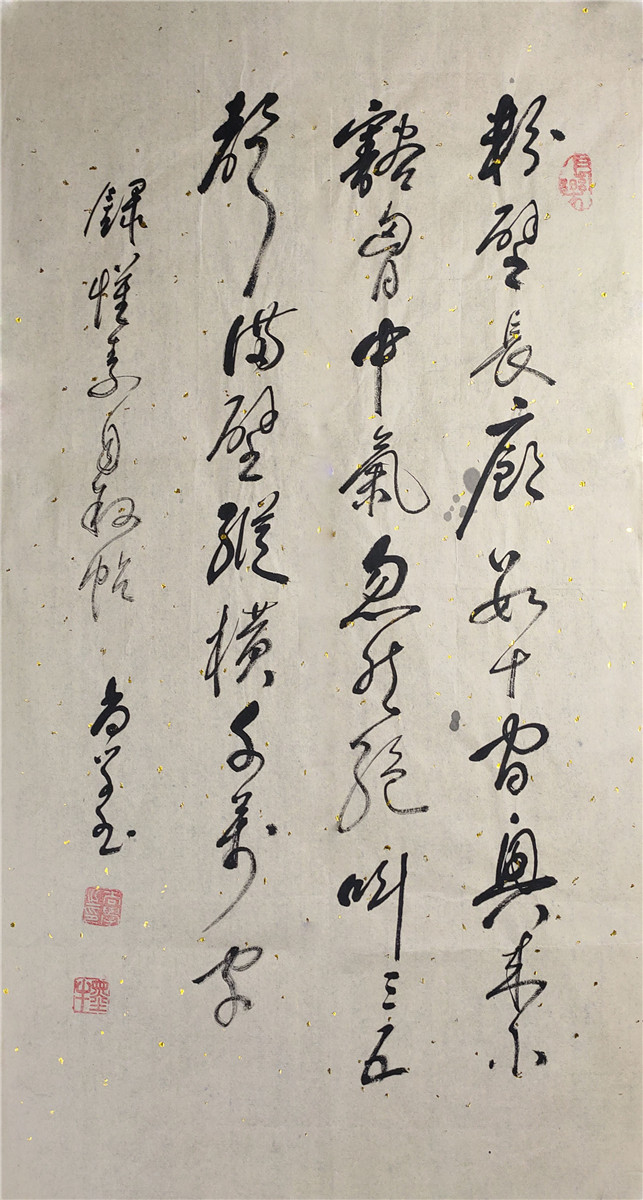 粉壁長廊數十間興來小
豁胷中氣忽然絕叫三五
聲滿壁縱橫千萬字
錄懷素自叙帖 尚學